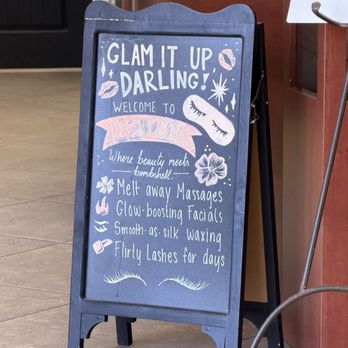 GLAM IT UP
DARLING!
WELCOME TO
Where beauty meets
bombshell.
Melt away Massages
Glow-boosting Facials
Smooth-as-silk waxing
Flirty Lashes for days